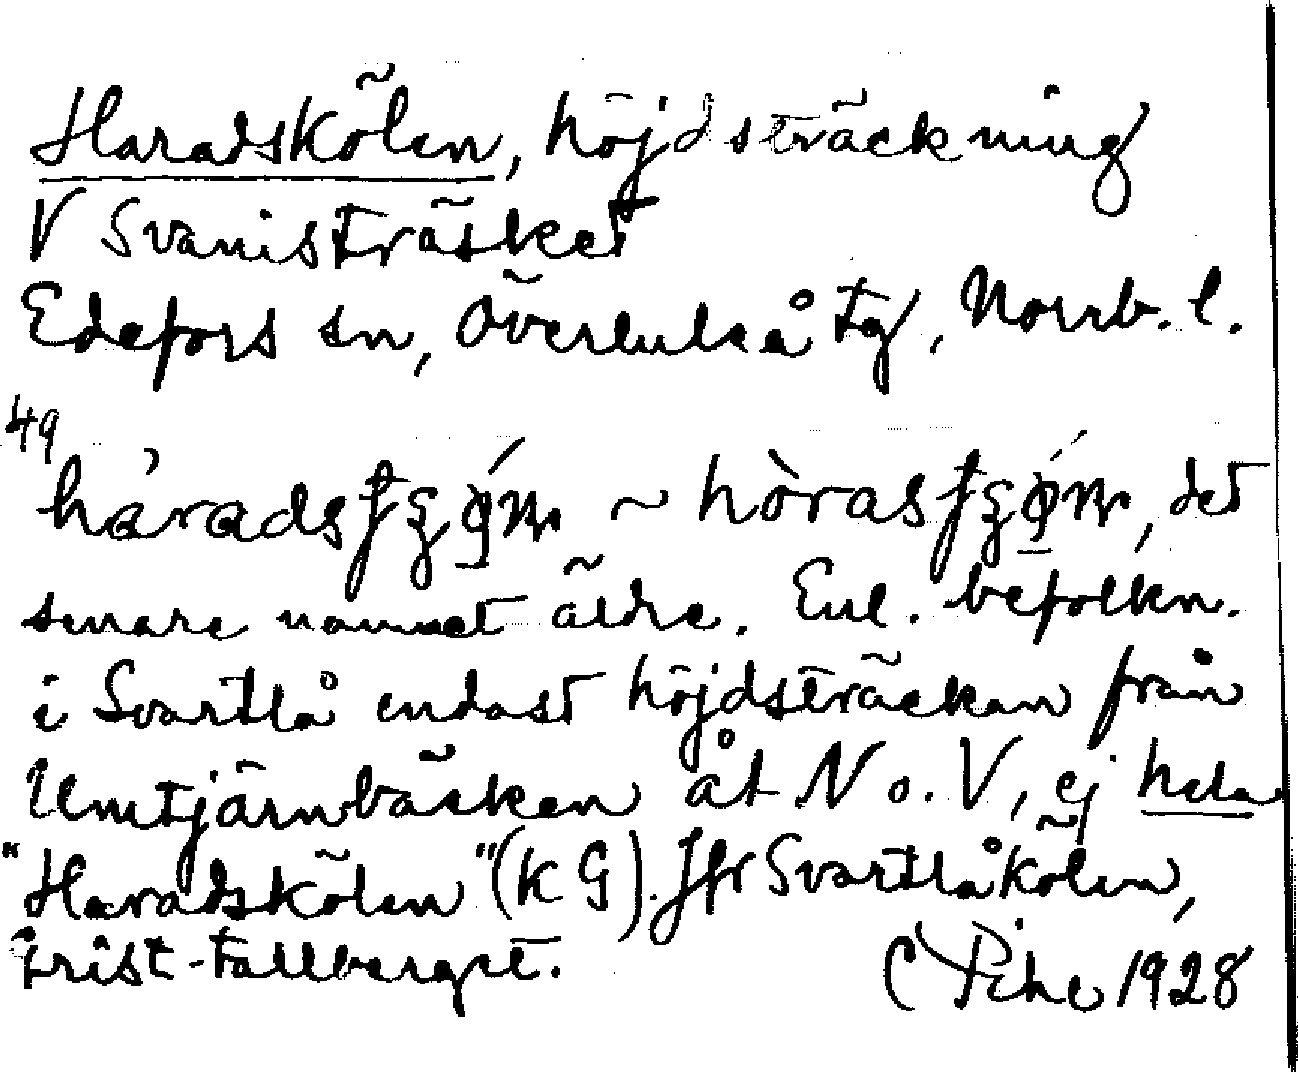 Haradskölen, höjdsträckning
V Svanisträsket
Edefors sn, Överluleå tg, Norrb. l.
49
det
senare namnet äldre. Enl. befolkn.
i Svartlå endast höjdsträckan från
Umtjärnbäcken åt N o. V, ej hela
"Haradskölen" (K G). Jfr Svartlåkölen,
-tallberget. C Pihl 1928